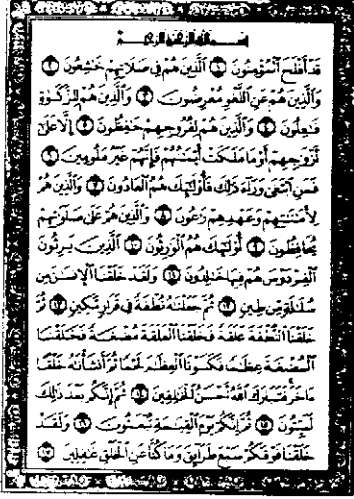 بسم الله الرحمن الرحيم
قد أفلح المؤمنون ① الذين هم في صلاتهم خشعون ②
والذين هم عن اللغو معرضون ③ والذين هم للزكوة
فعلون ④ والذين هم لفروجهم حفظون ⑤ إلا على
أزوجهم أو ما ملكت أيمنهم فإنهم غير ملومين ⑥
فمن ابتغى وراء ذلك فأولئك هم العادون ⑦ والذين هم
لأمنتهم وعهدهم رعون ⑧ والذين هم على صلوتهم
يحافظون ⑨ أولئك هم الورثون ⑩ الذين يرثون
الفردوس هم فيها خلدون ⑪ ولقد خلقنا الإنسن من
سللة من طين ⑫ ثم جعلنه نطفة في قرار مكين ⑬ ثم
خلقنا النطفة علقة فخلقنا العلقة مضغة فخلقنا
المضغة عظما فكسونا العظم لحما ثم أنشأنه خلقا
ءاخر فتبارك الله أحسن الخلقين ⑭ ثم إنكم بعد ذلك
لميتون ⑮ ثم إنكم يوم القيمة تبعثون ⑯ ولقد
خلقنا فوقكم سبع طرائق وما كنا عن الخلق غفلين ⑰